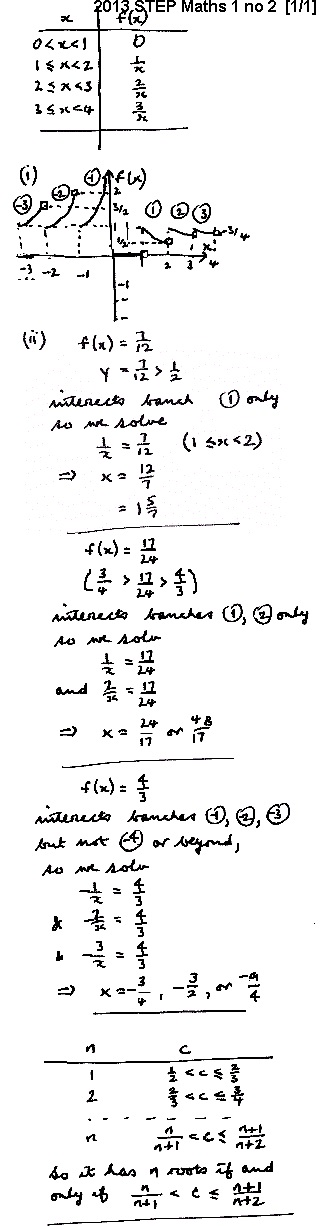 2013 STEP Maths 1 no 2 [1/1]
x f(x)
0<x<1 0
1≤x<2 1/x
2≤x<3 2/x
3≤x<4 3/x
(i) f(x)
-3 -2 -1 2
3/2
1 1 2 3
1/2 3/4
-3 -2 -1 2 3 x 4
-1
(ii) f(x) = 7/12
y = 7/12 > 1/2
interects banch ① only
so we solve
1/x = 7/12 (1≤x<2)
⇒ x = 12/7
= 1 5/7
f(x) = 17/24
(3/4 > 17/24 > 4/3)
interects banches ①, ② only
so we solve
1/x = 17/24
and 2/x = 17/24
⇒ x = 24/17 or 48/17
f(x) = 4/3
interects banches -1, -2, -3
but not -4 or beyond,
so we solve
-1/x = 4/3
& -2/x = 4/3
& -3/x = 4/3
⇒ x = -3/4, -3/2, or -9/4
n c
1 1/2 < c ≤ 2/3
2 2/3 < c ≤ 3/4
n n/n+1 < c ≤ n+1/n+2
So it has n roots if and
only if n/n+1 < c ≤ n+1/n+2